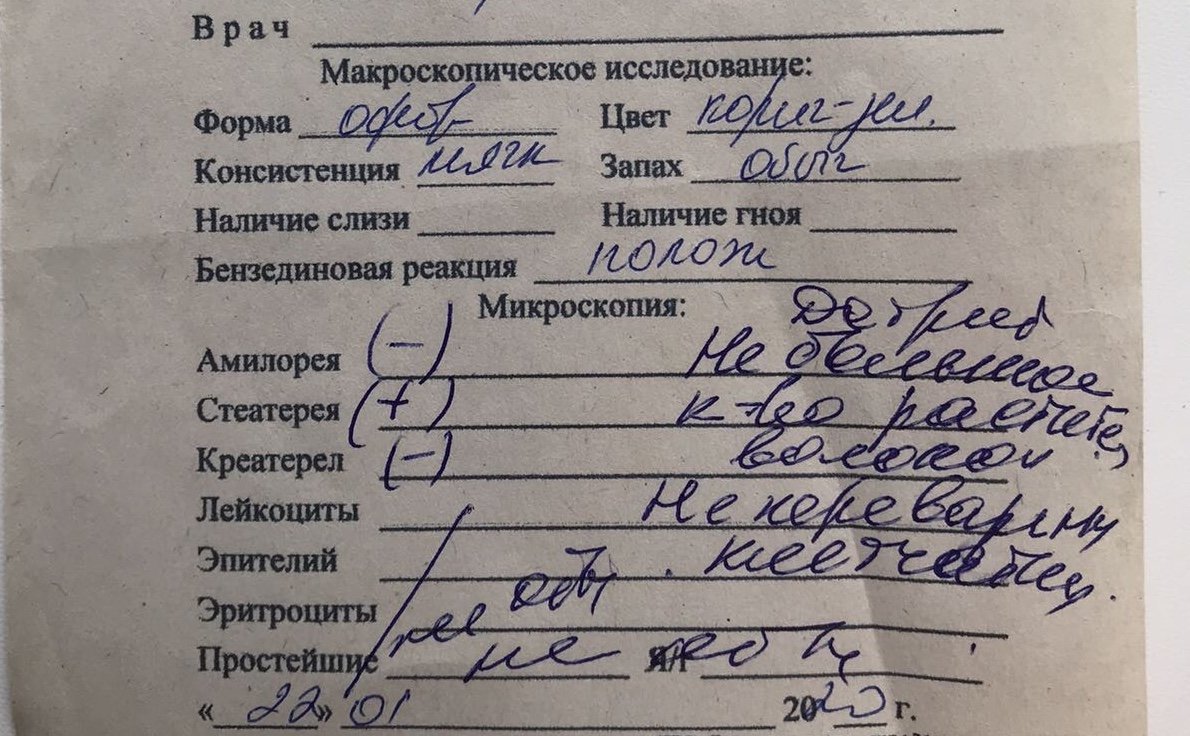 Врач
Макроскопическое исследование:
Форма оформ Цвет корич-зел.
Консистенция мягк Запах обыч
Наличие слизи Наличие гноя
Бензединовая реакция полож
Микроскопия: Детрит
Амилорея (−) Небольшое
Стеатерея (+) к-во растит.
Креатерел (−) волокон
Лейкоциты Неперевар
Эпителий клетчатки.
Эритроциты не обн
Простейшие не Я/Г
«22» 01 2020 г.